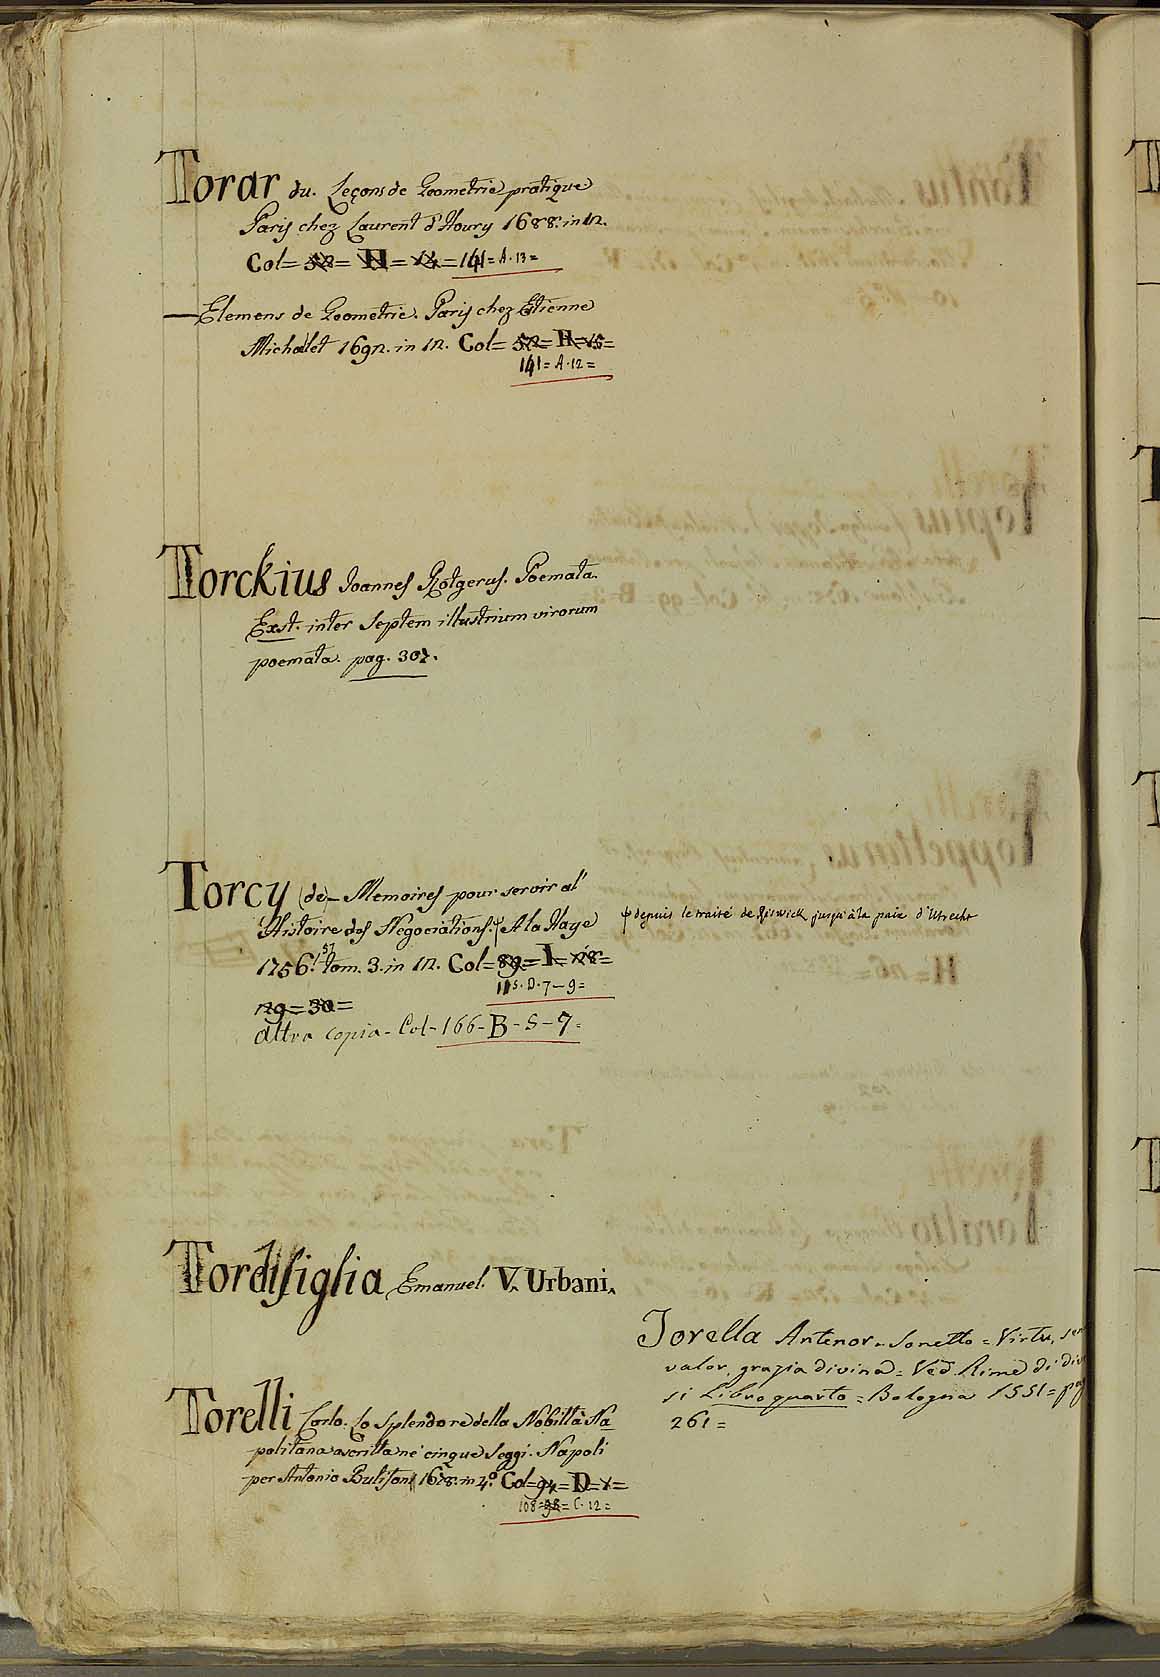 Torar du. Leçons de Geometrie pratique
Paris chez Laurent d'Houry 1688. in 12.
Col= 52= H= 14= 141= A. 13=
—Elemens de Geometrie. Paris chez Etienne
Michallet 1692. in 12. Col= 52= H= 15=
141= A. 12=
Torckius Joannes Rotgerus. Poemata.
Exst. inter septem illustrium virorum
poemata. pag. 307.
Torcy (de)– Memoires pour servir al'
Histoire des Negociations. ф A la Haye
ф depuis le traité de Riswick jusqu'à la paix d'Utrecht
1756. 57 tom. 3. in 12. Col= 89= I= 28=
115. D. 7–9=
29= 30=
altra copia– Col– 166– B– 5– 7=
Tordisiglia Emanuel. V. Urbani.
Torella Antenor– Sonetto= Virtu,
valor, grazia divina= Ved. Rime di
si Libro quarto= Bologna 1551=
261=
Torelli Carlo. Lo Splendore della Nobiltà Na
politana ascritta ne' cinque Seggi. Napoli
per Antonio Bulifon 1678. in 4º Col= 94= D= 1=
108= 98= C. 12=